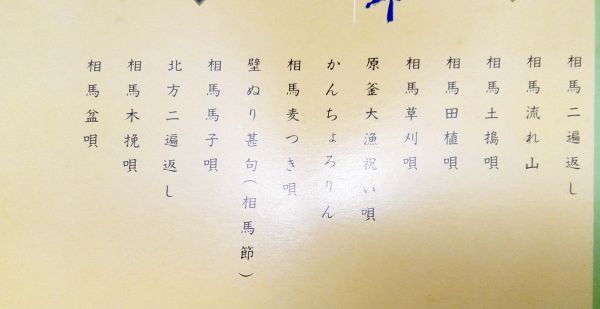 相馬二遍返し
相馬流れ山
相馬土搗唄
相馬田植唄
相馬草刈唄
原釜大漁祝い唄
かんちょろりん
相馬麦つき唄
壁ぬり甚句(相馬節)
相馬馬子唄
北方二遍返し
相馬木挽唄
相馬盆唄